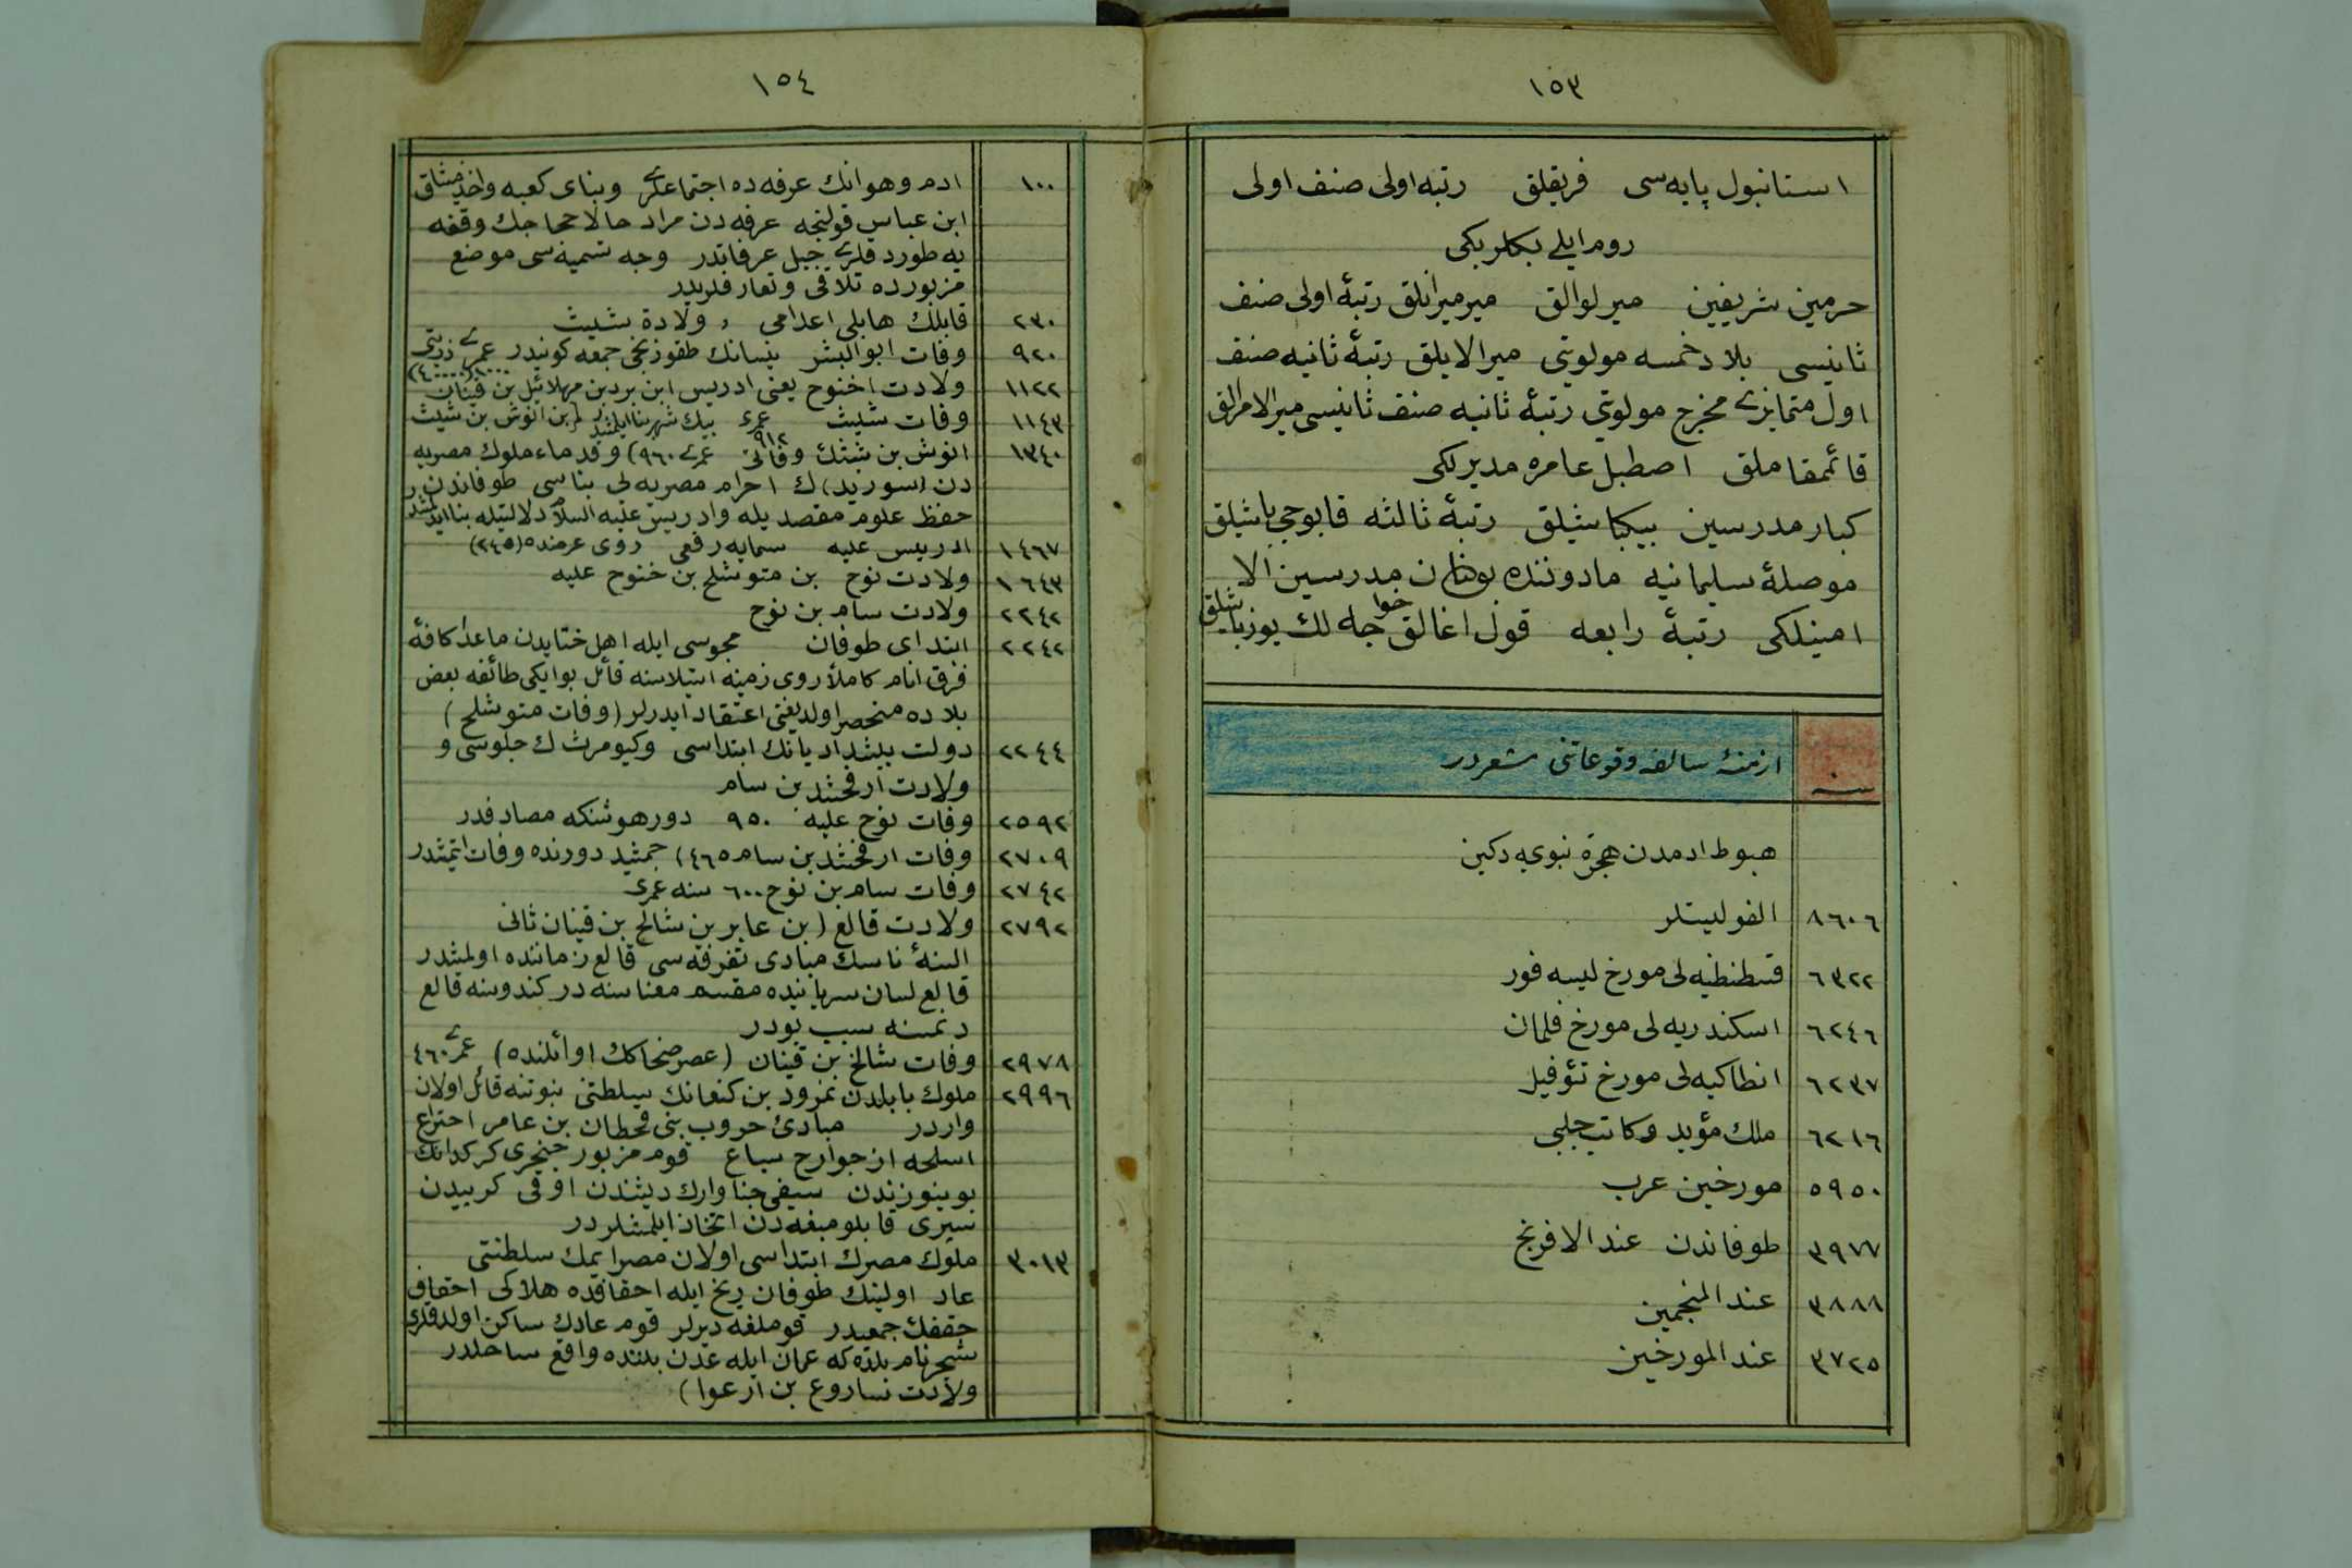 ١٥٣
استانبول پایه‌سی فریقلق رتبه اولی صنف اولی
روم ایلی بکلربکی
حرمین شریفین میرلوالق میرمیرانلق رتبۀ اولی صنف
ثانیسی بلاد خمسه مولویتی میرالایلق رتبۀ ثانیه صنف
اول متمایزی مخرج مولویتی رتبۀ ثانیه صنف ثانیسی میرالامرالق
قائمقاملق اصطبل عامره مدیرلکی
کبار مدرسین بیکباشیلق رتبۀ ثالثه قاپوجی باشیلق
موصلۀ سلیمانیه مادوننده بولنان مدرسین الا
امینلکی رتبۀ رابعه قول اغالق خواجه لك یوزباشیلق
سنه ازمنۀ سالفه وقوعاتنی مشعردر
هبوط ادمدن هجرة نبویه دکین
٨٦٠٦ الفولیتلر
٦٣٢٢ قسطنطنیه لی مورخ لیسه فور
٦٢٤٦ اسکندریه لی مورخ فلمان
٦٢٣٧ انطاکیه لی مورخ تئوفیل
٦٢١٦ ملك مؤید وکاتب چلبی
٥٩٥٠ مورخین عرب
٣٩٧٧ طوفاندن عند الافرنج
٣٨٨٨ عند المنجمین
٣٧٢٥ عند المورخین
١٥٤
١٠٠ ادم وهوانك عرفه ده اجتماعلری وبنای کعبه واخذ میثاق
ابن عباس قولنجه عرفه دن مراد حالا حجاجك وقفه
یه طوردقلری جبل عرفاتدر وجه تسمیه سی موضع
مزبورده تلاقی وتعارفلریدر
٢٣٠ قابلك هابلی اعدامی و ولادة شیث
٩٢٠ وفات ابوالبشر نیسانك طقوزنجی جمعه کونیدر عمری ١٠٠٠ ذریتی ٤٠٠٠٠
١١٢٢ ولادت اخنوح یعنی ادریس ابن یرد بن مهلائیل بن قینان
١١٤٣ وفات شیث عمری ٩١٢ بیك شهر بنا ایلمشدر بن انوش بن شیث
١٣٤٠ انوش بن شیثك وفاتی عمری ٩٦٠) وقدماء ملوك مصریه
دن (سورید) ك احرام مصریه لی بناسی طوفاندن
حفظ علوم مقصدیله وادریس علیه السلام دلالتیله بنا ایدلمشدر
١٤٦٧ ادریس علیه سمایه رفعی روی عرضده (٣٤٥)
١٦٤٣ ولادت نوح بن متوشلح بن خنوح علیه
٢٢٤٢ ولادت سام بن نوح
٢٢٤٢ ابتدای طوفان مجوسی ایله اهل ختایدن ماعدا کافۀ
فرق انام کاملاً روی زمینه استیلاسنه قائل بو ایکی طائفه بعض
بلاده منحصر اولدیغنی اعتقاد ایدرلر (وفات متوشلح)
٢٢٤٤ دولت پیشدادیانك ابتداسی وکیومرث ك جلوسی و
ولادت ارفخشد بن سام
٢٥٩٢ وفات نوح علیه ٩٥٠ دور هوشنکه مصادفدر
٢٧٠٩ وفات ارفخشد بن سام ٤٦٥) جمشید دورنده وفات ایتمشدر
٢٧٤٢ وفات سام بن نوح ٦٠٠ سنه عمری
٢٧٩٢ ولادت قالع (بن عابر بن شالخ بن قینان ثانی
السنۀ ناسك مبادی تفرقه سی قالع زماننده اولمشدر
قالع لسان سریانیده مقسم معناسنه در کندوسنه قالع
دنمسنه سبب بودر
٢٩٧٨ وفات شالخ بن قینان (عصر ضحاكك اوائلنده) عمری ٤٦٠
٢٩٩٦ ملوك بابلدن نمرود بن کنعانك سلطنتی نبوتنه قائل اولان
واردر مبادئ حروب بنی قحطان بن عامر اختراع
اسلحه از جوارح سباع قوم مزبور خنجری کرکدانك
بوینوزندن سیفی جناوارك دیشندن اوقی کرپیدن
سپری قابلومبغه دن اتخاذ ایلمشلردر
٣٠١٣ ملوك مصرك ابتداسی اولان مصرایمك سلطنتی
عاد اولینك طوفان ریح ایله احقافده هلاکی احقاف
حقفك جمعیدر قوملغه دیرلر قوم عادك ساکن اولدقلری
شحر نام بلده که عمان ایله عدن بیننده واقع ساحلدر
ولادت ساروع بن ارعوا)